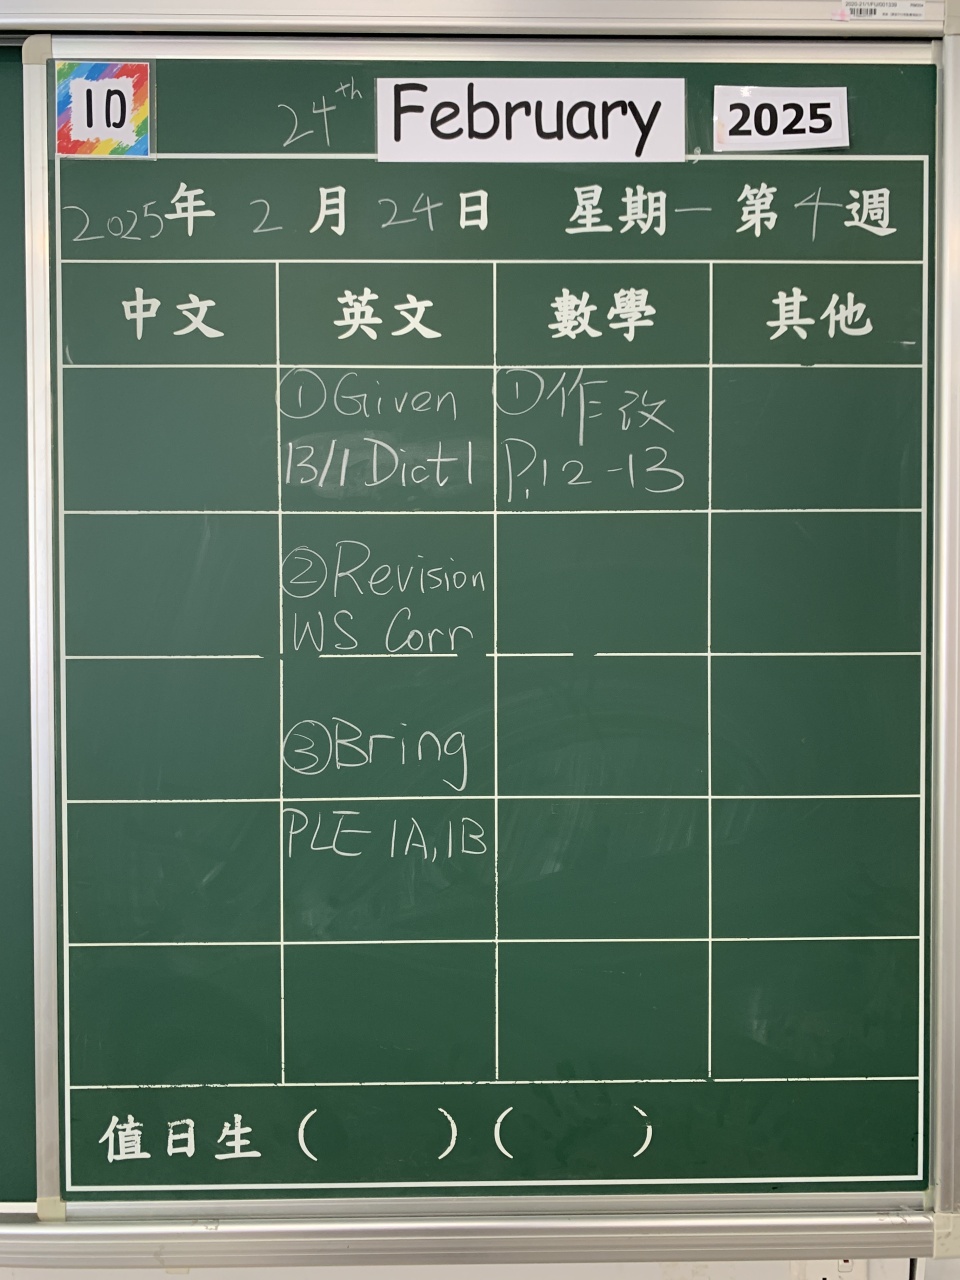 1D
24th February, 2025
2025年 2月 24日 星期一 第4週
中文 英文 數學 其他
①Given ①作改
13/1 Dict1 P.12-13
②Revision
WS Corr
③Bring
PLE 1A,1B
值日生 ( ) ( )